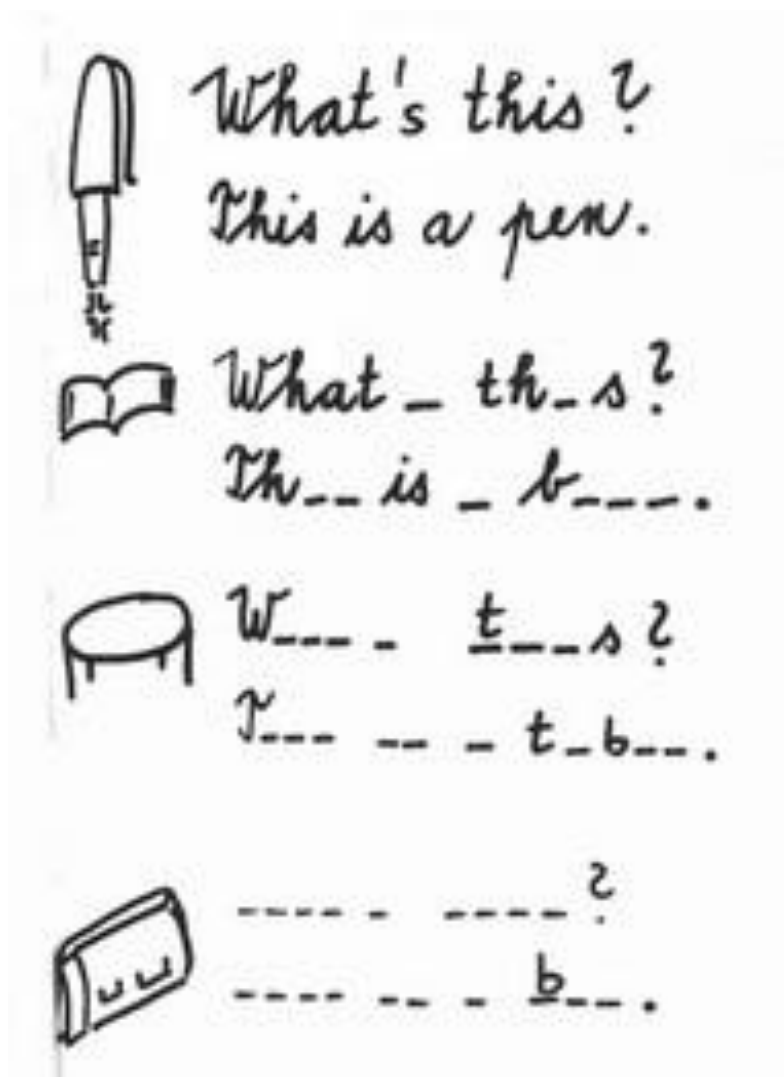 What's this?
This is a pen.
What _ th_s?
Th__ is _ b____.
W___ _ t___s?
T___ __ _ t_b__.
____ _ ____?
____ __ _ b__.